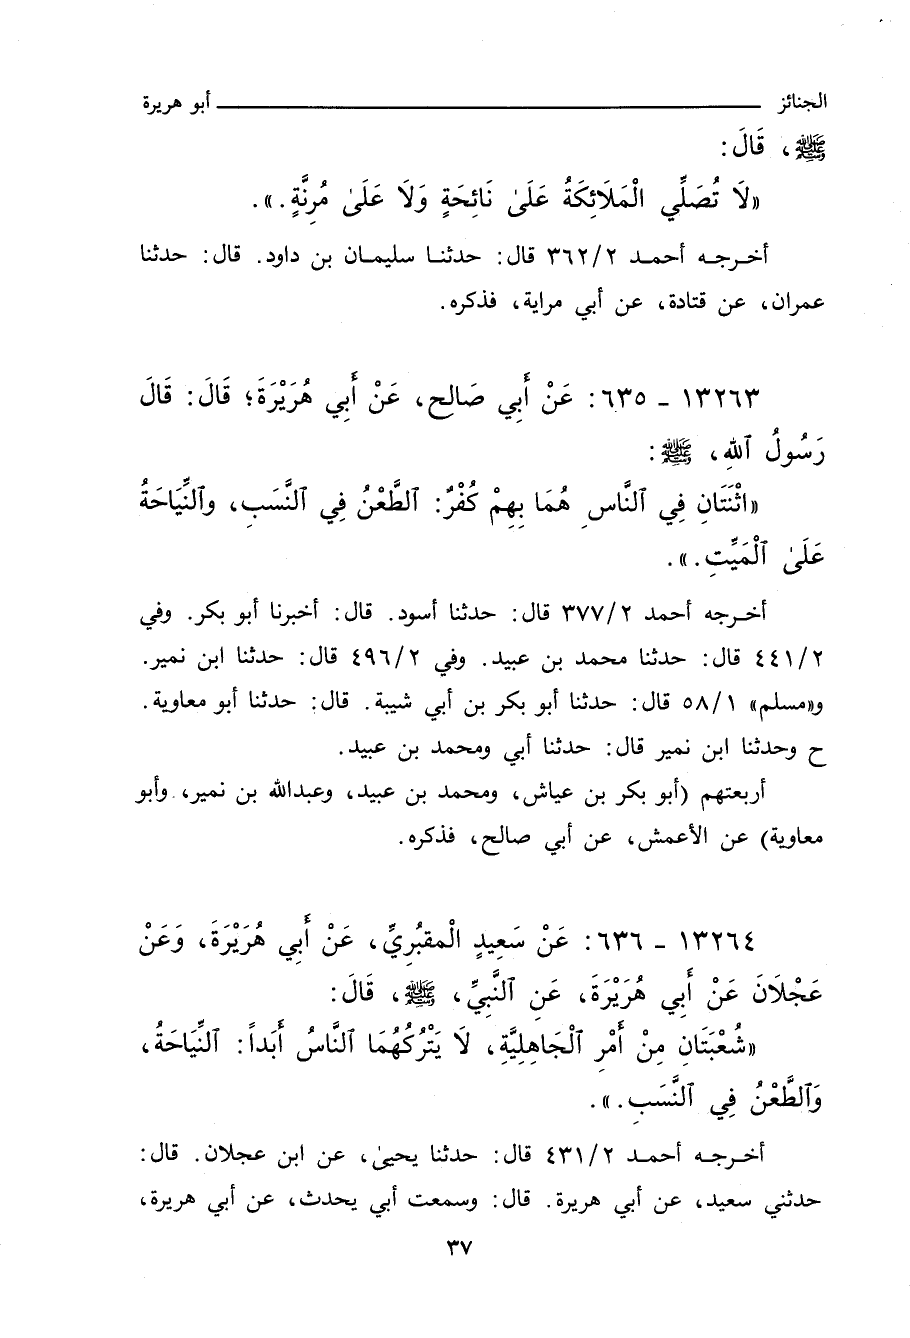 الجنائز ــــــــــــــــــــ أبو هريرة
ﷺ، قَالَ:
«لَا تُصَلِّي الْمَلَائِكَةُ عَلَىٰ نَائِحَةٍ وَلَا عَلَىٰ مُرِنَّةٍ.».
أخـرجـه أحمـد ٣٦٢/٢ قال: حدثنـا سليمـان بن داود. قال: حدثنا
عمران، عن قتادة، عن أبي مراية، فذكره.
١٣٢٦٣ ـ ٦٣٥: عَنْ أَبِي صَالِحٍ، عَنْ أَبِي هُرَيْرَةَ؛ قَالَ: قَالَ
رَسُولُ ٱللهِ، ﷺ:
«اثْنَتَانِ فِي ٱلنَّاسِ هُمَا بِهِمْ كُفْرٌ: ٱلطَّعْنُ فِي ٱلنَّسَبِ، وٱلنِّيَاحَةُ
عَلَىٰ ٱلْمَيِّتِ.».
أخـرجه أحمد ٣٧٧/٢ قال: حدثنا أسود. قال: أخبرنا أبو بكر. وفي
٤٤١/٢ قال: حدثنا محمد بن عبيد. وفي ٤٩٦/٢ قال: حدثنا ابن نمير.
و«مسلم» ٥٨/١ قال: حدثنا أبو بكر بن أبي شيبة. قال: حدثنا أبو معاوية.
ح وحدثنا ابن نمير قال: حدثنا أبي ومحمد بن عبيد.
أربعتهم (أبو بكر بن عياش، ومحمد بن عبيد، وعبدالله بن نمير، وأبو
معاوية) عن الأعمش، عن أبي صالح، فذكره.
١٣٢٦٤ ـ ٦٣٦: عَنْ سَعِيدٍ الْمقبُرِيِّ، عَنْ أَبِي هُرَيْرَةَ، وَعَنْ
عَجْلَانَ عَنْ أَبِي هُرَيْرَةَ، عَنِ ٱلنَّبِيِّ، ﷺ، قَالَ:
«شُعْبَتَانِ مِنْ أَمْرِ ٱلْجَاهِلِيَّةِ، لَا يَتْرُكُهُمَا ٱلنَّاسُ أَبَداً: ٱلنِّيَاحَةُ،
وَٱلطَّعْنُ فِي ٱلنَّسَبِ.».
أخـرجـه أحمـد ٤٣١/٢ قال: حدثنا يحيىٰ، عن ابن عجلان. قال:
حدثني سعيد، عن أبي هريرة. قال: وسمعت أبي يحدث، عن أبي هريرة،
٣٧